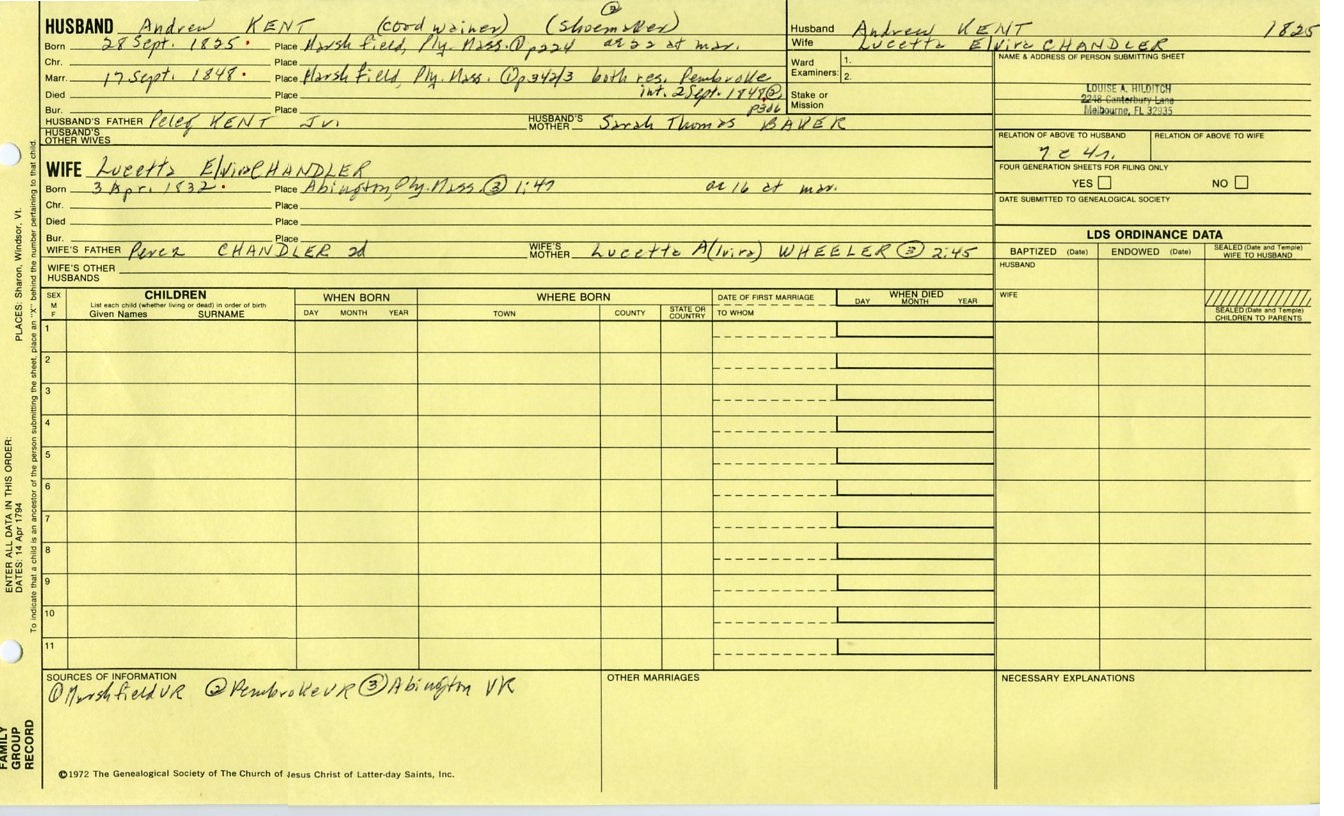 ②
HUSBAND Andrew KENT (cordwainer) (shoemaker)
Born 28 Sept. 1825 Place Marshfield, Ply. Mass. ① p224 ae 22 at mar.
Chr. Place
Marr. 17 Sept. 1848 Place Marshfield, Ply. Mass. ① p342/3 both res. Pembroke
int. 2 Sept. 1848 ②
Died Place p306
Bur. Place
HUSBAND'S FATHER Peleg KENT Jr. HUSBAND'S MOTHER Sarah Thomas BAKER
HUSBAND'S OTHER WIVES
WIFE Lucetta Elvira CHANDLER
Born 3 Apr. 1832 Place Abington, Ply. Mass. ③ 1:47 ae 16 at mar.
Chr. Place
Died Place
Bur. Place
WIFE'S FATHER Perez CHANDLER 2d WIFE'S MOTHER Lucetta A(lvira) WHEELER ③ 2:45
WIFE'S OTHER HUSBANDS
Husband Andrew KENT 1825
Wife Lucetta Elvira CHANDLER
Ward Examiners: 1.
2.
Stake or Mission
NAME & ADDRESS OF PERSON SUBMITTING SHEET
LOUISE A. HILDITCH
2248 Canterbury Lane
Melbourne, FL 32935
RELATION OF ABOVE TO HUSBAND RELATION OF ABOVE TO WIFE
7c 4r.
FOUR GENERATION SHEETS FOR FILING ONLY
YES NO
DATE SUBMITTED TO GENEALOGICAL SOCIETY
LDS ORDINANCE DATA
BAPTIZED (Date) ENDOWED (Date) SEALED (Date and Temple) WIFE TO HUSBAND
HUSBAND
WIFE
SEALED (Date and Temple) CHILDREN TO PARENTS
SEX M F
CHILDREN
List each child (whether living or dead) in order of birth
Given Names SURNAME
WHEN BORN
DAY MONTH YEAR
WHERE BORN
TOWN COUNTY STATE OR COUNTRY
DATE OF FIRST MARRIAGE
TO WHOM
WHEN DIED
DAY MONTH YEAR
1
2
3
4
5
6
7
8
9
10
11
SOURCES OF INFORMATION
① Marshfield VR ② Pembroke VR ③ Abington VR
OTHER MARRIAGES
NECESSARY EXPLANATIONS
©1972 The Genealogical Society of The Church of Jesus Christ of Latter-day Saints, Inc.
FAMILY GROUP RECORD
ENTER ALL DATA IN THIS ORDER:
DATES: 14 Apr 1794 PLACES: Sharon, Windsor, Vt.
To indicate that a child is an ancestor of the person submitting the sheet, place an "X" behind the number pertaining to that child.